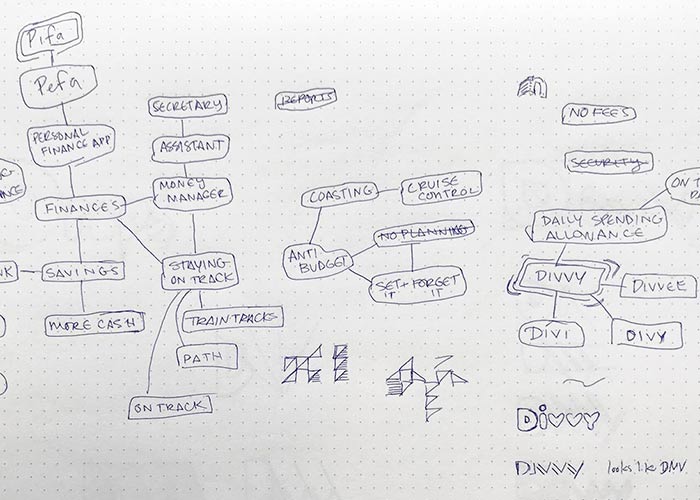 Pifa
Pefa
PERSONAL
FINANCE APP
FINANCES
SAVINGS
MORE CASH
SECRETARY
ASSISTANT
MONEY
MANAGER
STAYING
ON TRACK
TRAIN TRACKS
PATH
ON TRACK
REPORTS
COASTING
CRUISE
CONTROL
ANTI
BUDGET
NO PLANNING
SET + FORGET
IT IT
NO FEES
SECURITY
ON T
DAILY SPENDING
ALLOWANCE
DIVVY
DIVVEE
DIVI
DIVY
Divvy
DIVVY looks like DMV